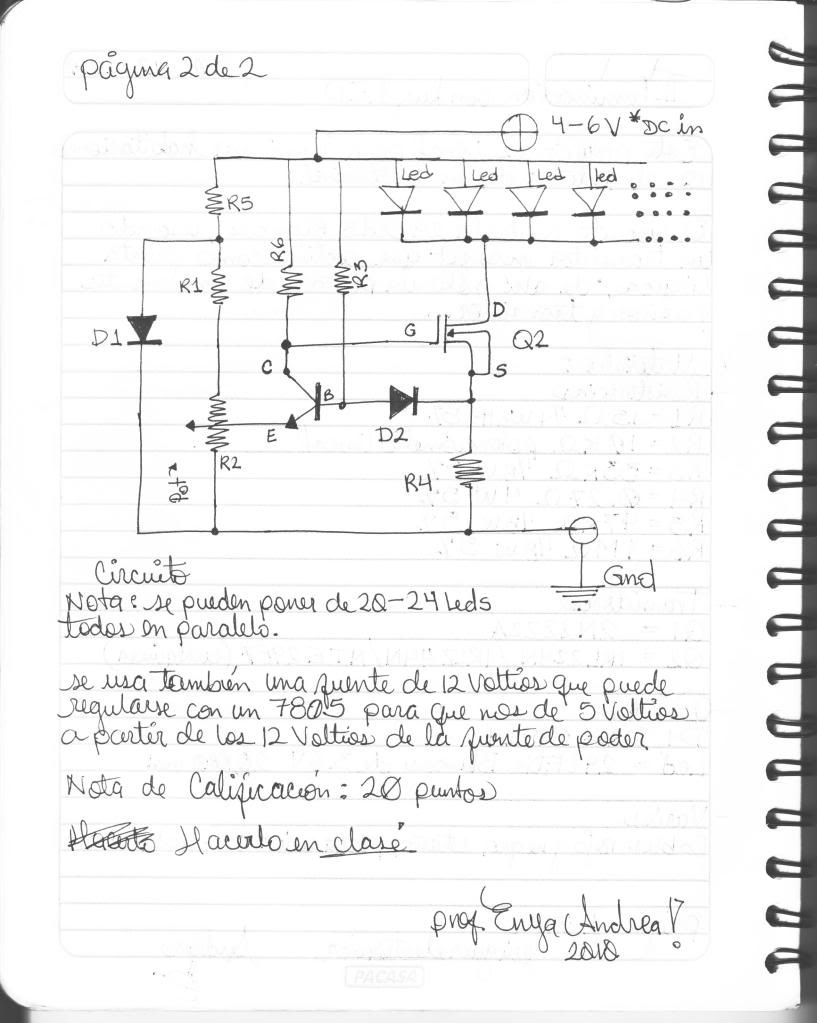 página 2 de 2
4-6V *DC in
Led Led Led led
R5
R6
R3
R1
D
G
Q2
D1
C
S
B
E
D2
R2
Pot
R4
Circuito
Gnd
Nota: se pueden poner de 20-24 Leds
todos en paralelo.
se usa también una fuente de 12 Voltios que puede
regularse con un 7805 para que nos de 5 Voltios
a partir de los 12 Voltios de la fuente de poder
Nota de Calificación: 20 puntos
Hacerlo en clase
prof. Enya Andrea
2010
PACASA